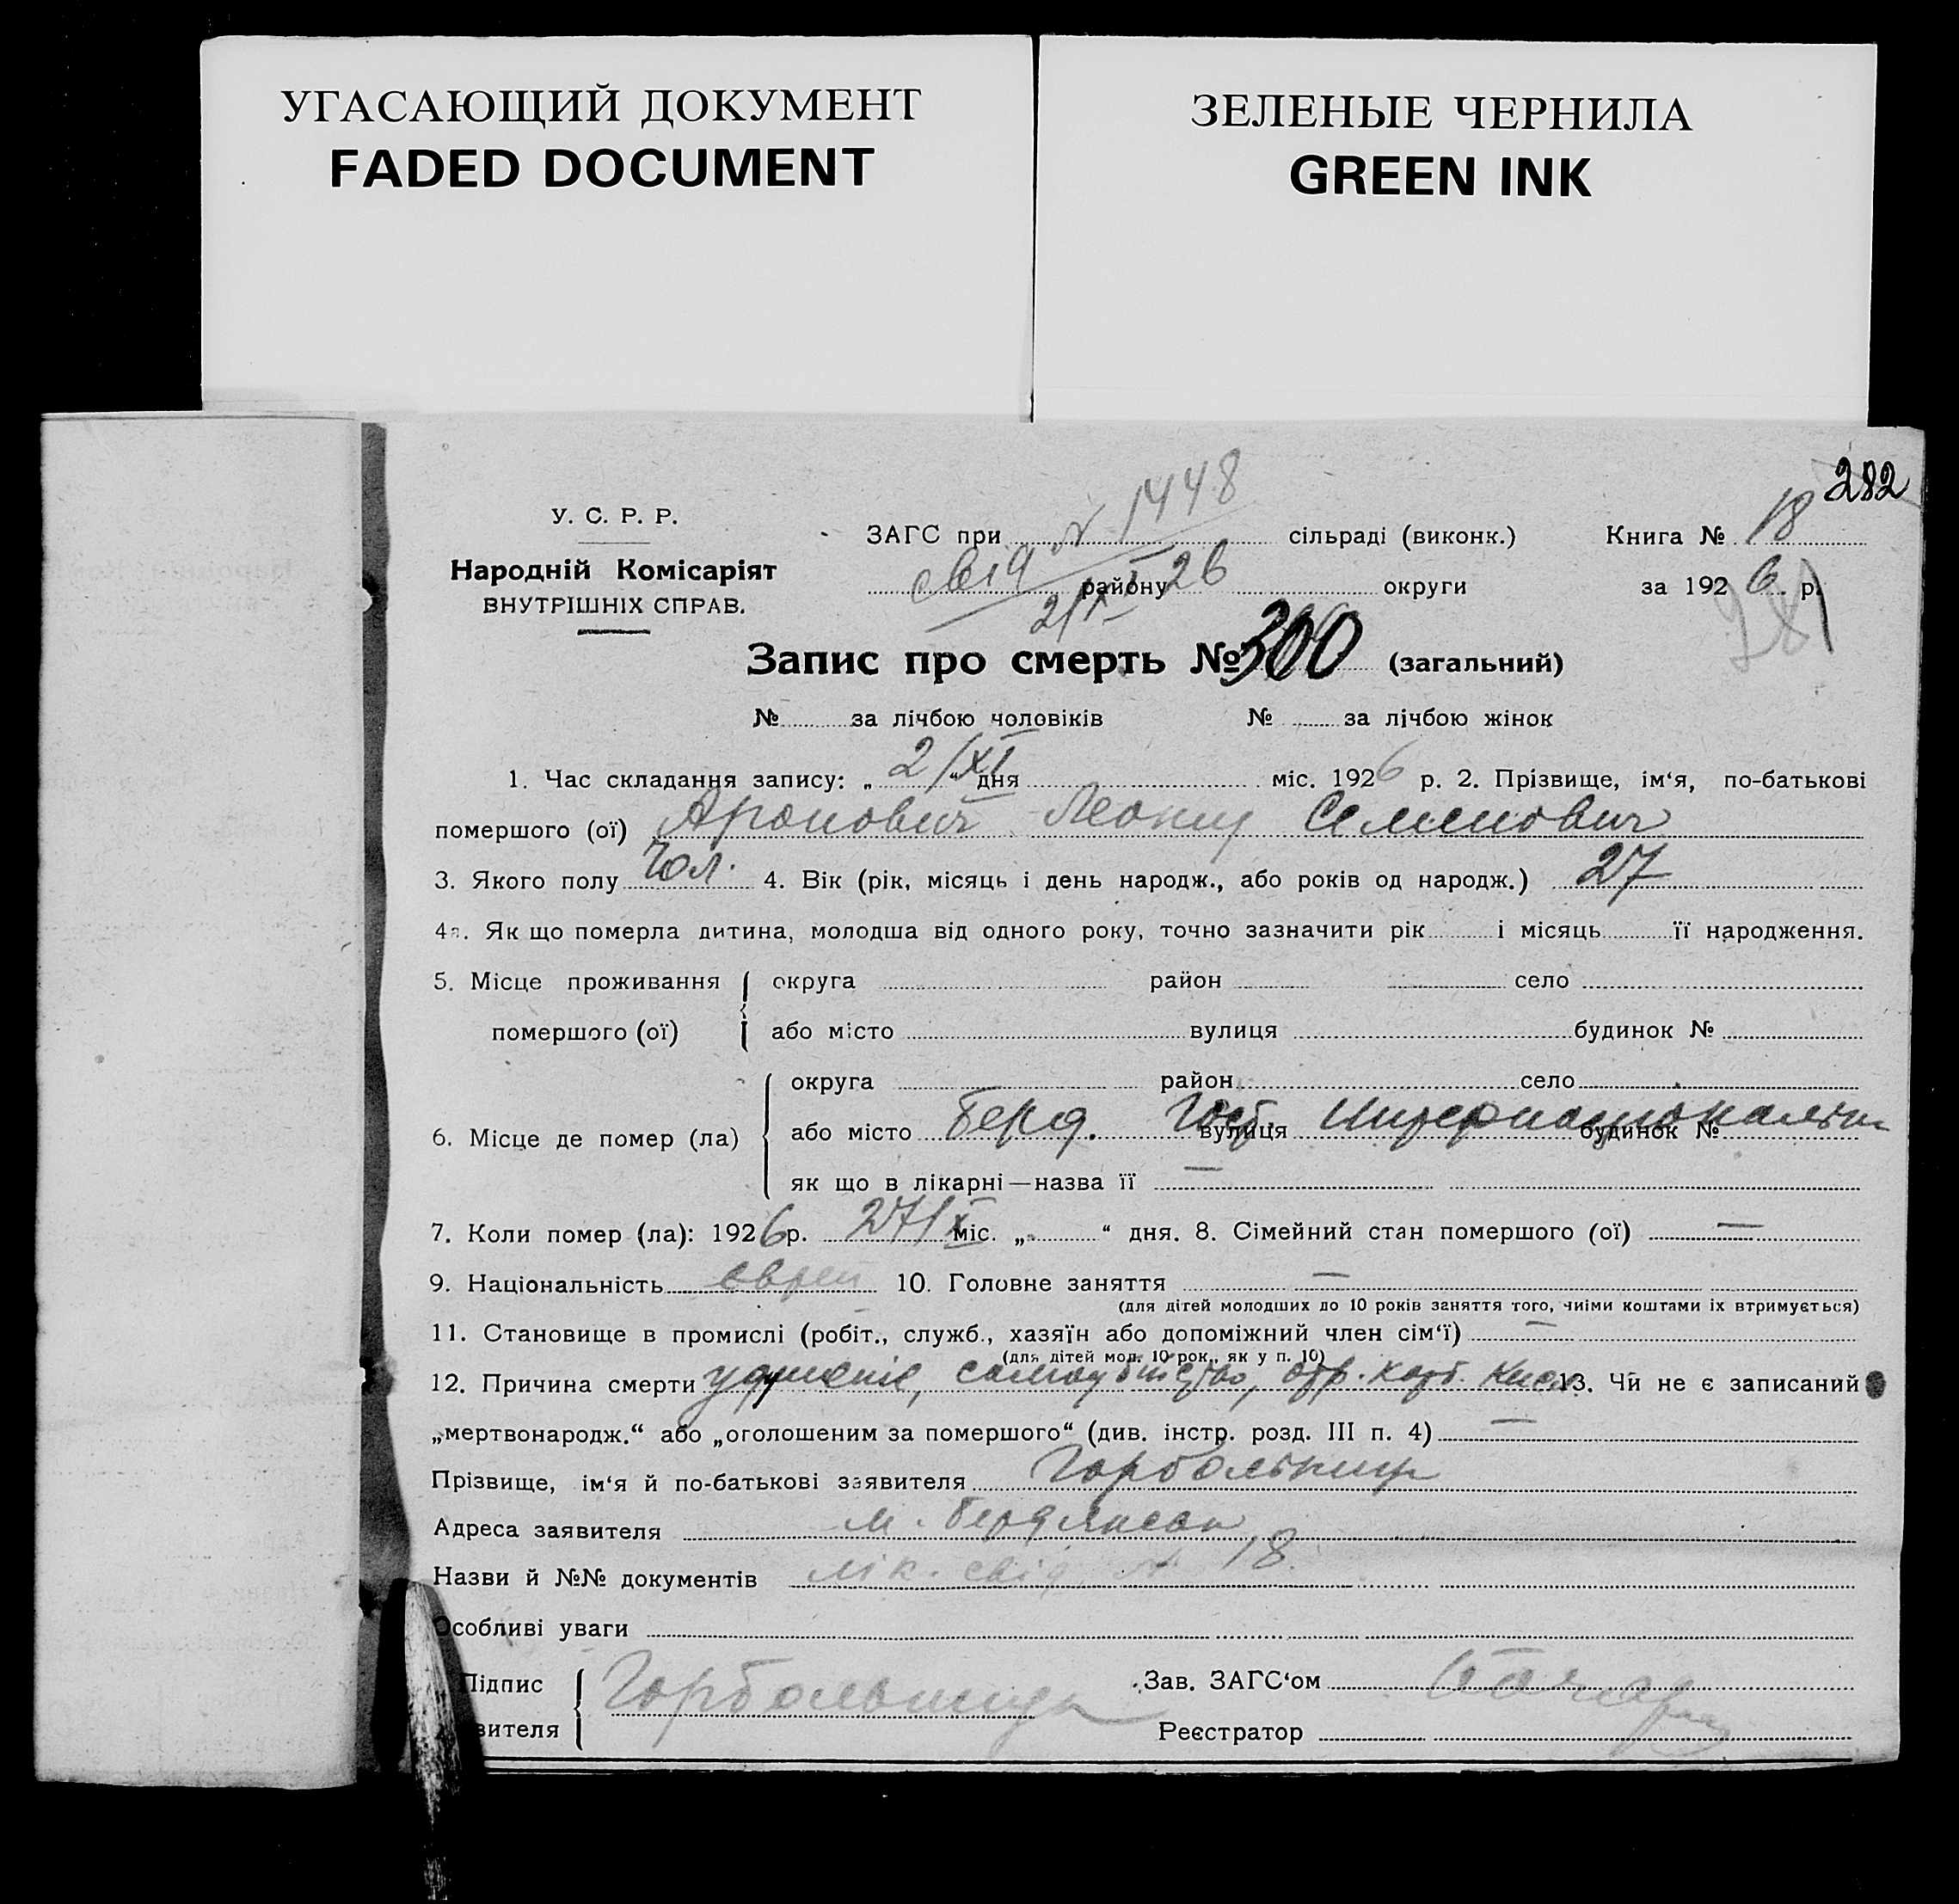 УГАСАЮЩИЙ ДОКУМЕНТ
FADED DOCUMENT
ЗЕЛЕНЫЕ ЧЕРНИЛА
GREEN INK
282
У. С. Р. Р.
Народній Комісаріят
ВНУТРІШНІХ СПРАВ.
ЗАГС при № 1448 сільраді (виконк.) Книга № 18
свід району 26 округи за 1926 р.
2/XI
281
Запис про смерть № 300 (загальний)
№ за лічбою чоловіків № за лічбою жінок
1. Час складання запису: „ 2/XI “ дня міс. 1926 р. 2. Прізвище, ім‘я, по-батькові
помершого (ої) Аронович Леонид Семенович
3. Якого полу Чол. 4. Вік (рік, місяць і день народж., або років од народж.) 27
4а. Як що померла дитина, молодша від одного року, точно зазначити рік і місяць її народження.
5. Місце проживання помершого (ої) округа район село
або місто вулиця будинок №
6. Місце де помер (ла) округа район село
або місто Берд. вулиця будинок №
як що в лікарні — назва її —
7. Коли помер (ла): 1926 р. 27/X міс. „ “ дня. 8. Сімейний стан помершого (ої) —
9. Національність еврей 10. Головне заняття —
(для дітей молодших до 10 років заняття того, чиїми коштами їх втримується)
11. Становище в промислі (робіт., служб., хазяїн або допоміжний член сім‘ї) —
(для дітей мол. 10 рок., як у п. 10)
12. Причина смерти самоубийство, отр. карб. кисл. 13. Чи не є записаний
„мертвонародж.“ або „оголошеним за помершого“ (див. інстр. розд. III п. 4) —
Прізвище, ім‘я й по-батькові заявителя Горбольниц
Адреса заявителя м. Бердянськ
Назви й №№ документів лік. свід. № 18.
Особливі уваги
Підпис вителя Горбольница
Зав. ЗАГС‘ом
Реєстратор